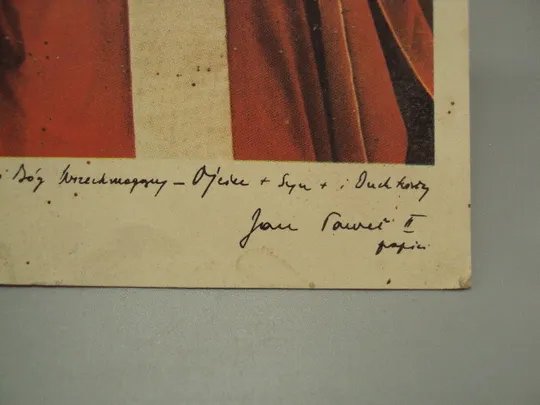 i Bóg Wszechmogący – Ojciec + Syn + i Duch Święty
Jan Paweł II
papież